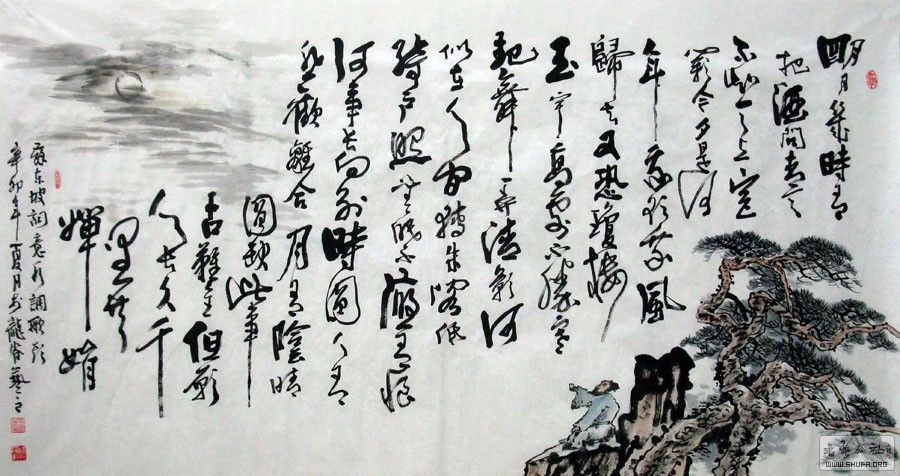 明月幾時有
把酒問青天
不知天上宮
闕今夕是何
年我欲乘風
歸去又恐瓊樓
玉宇高處不勝寒
起舞弄清影何
似在人間轉朱閣低
綺戶照無眠不應有恨
何事長向別時圓人有
悲歡離合月有陰晴
圓缺此事
古難全但願
人長久千
里共
嬋娟
蘇東坡詞意水調歌頭
辛卯年夏月於龍
公社
WWW.SHUFA.ORG